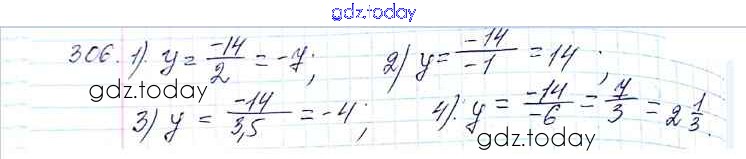 gdz.today
306. 1). y = -14/2 = -7; 2) y = -14/-1 = 14;
gdz.today
3) y = -14/3,5 = -4; 4). y = -14/-6 = 7/3 = 2 1/3.
gdz.today